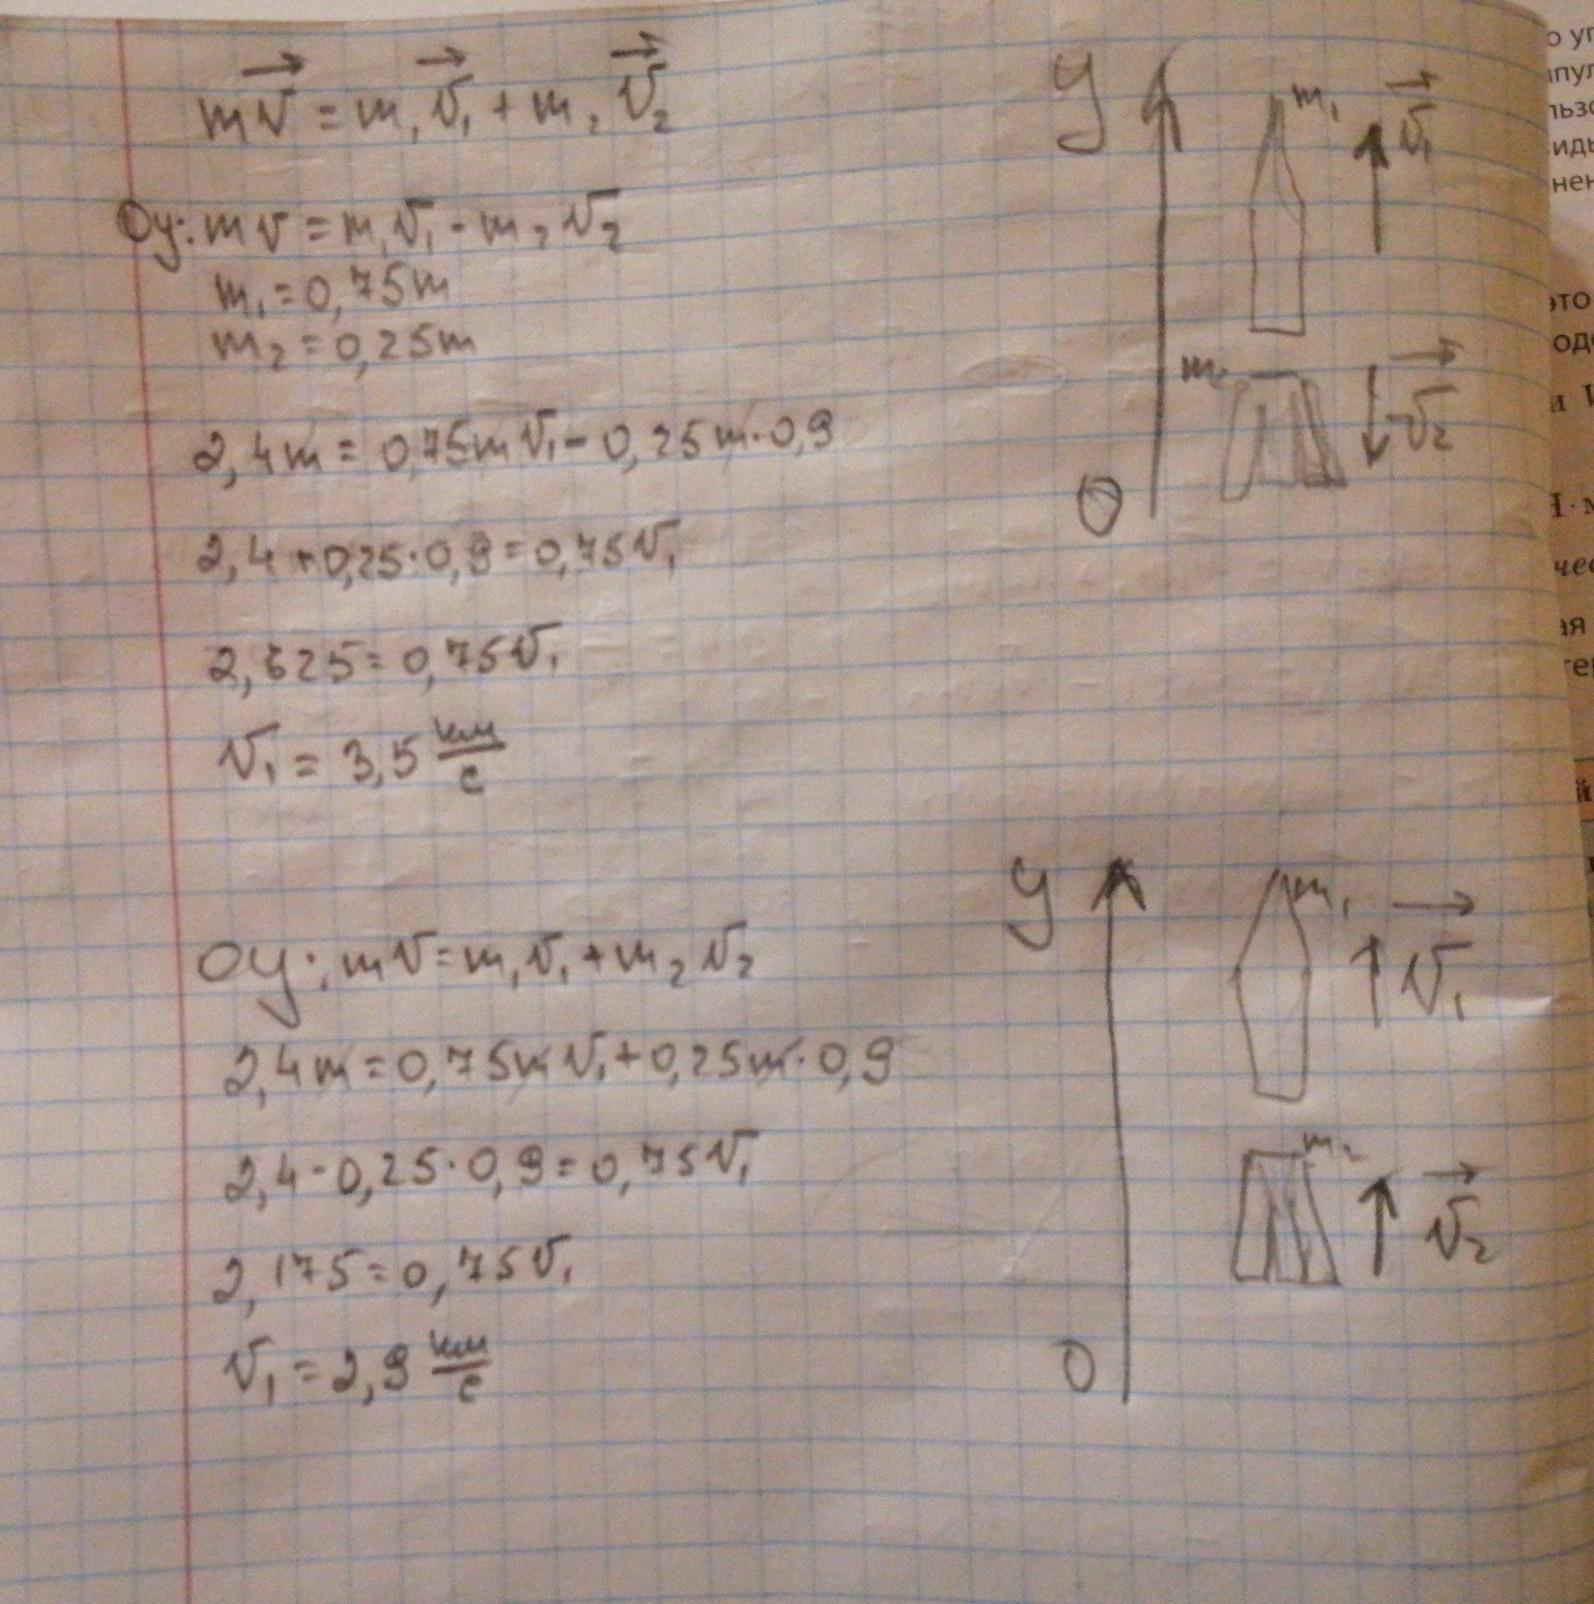 mv⃗ = m₁v⃗₁ + m₂v⃗₂
Oy: mv = m₁v₁ - m₂v₂
m₁ = 0,75m
m₂ = 0,25m
2,4m = 0,75mv₁ - 0,25m·0,9
2,4 + 0,25·0,9 = 0,75v₁
2,625 = 0,75v₁
v₁ = 3,5 км/с
y
m₁
v⃗₁
m₂
v⃗₂
O
Oy: mv = m₁v₁ + m₂v₂
2,4m = 0,75mv₁ + 0,25m·0,9
2,4 - 0,25·0,9 = 0,75v₁
2,175 = 0,75v₁
v₁ = 2,9 км/с
y
m₁
v⃗₁
m₂
v⃗₂
O